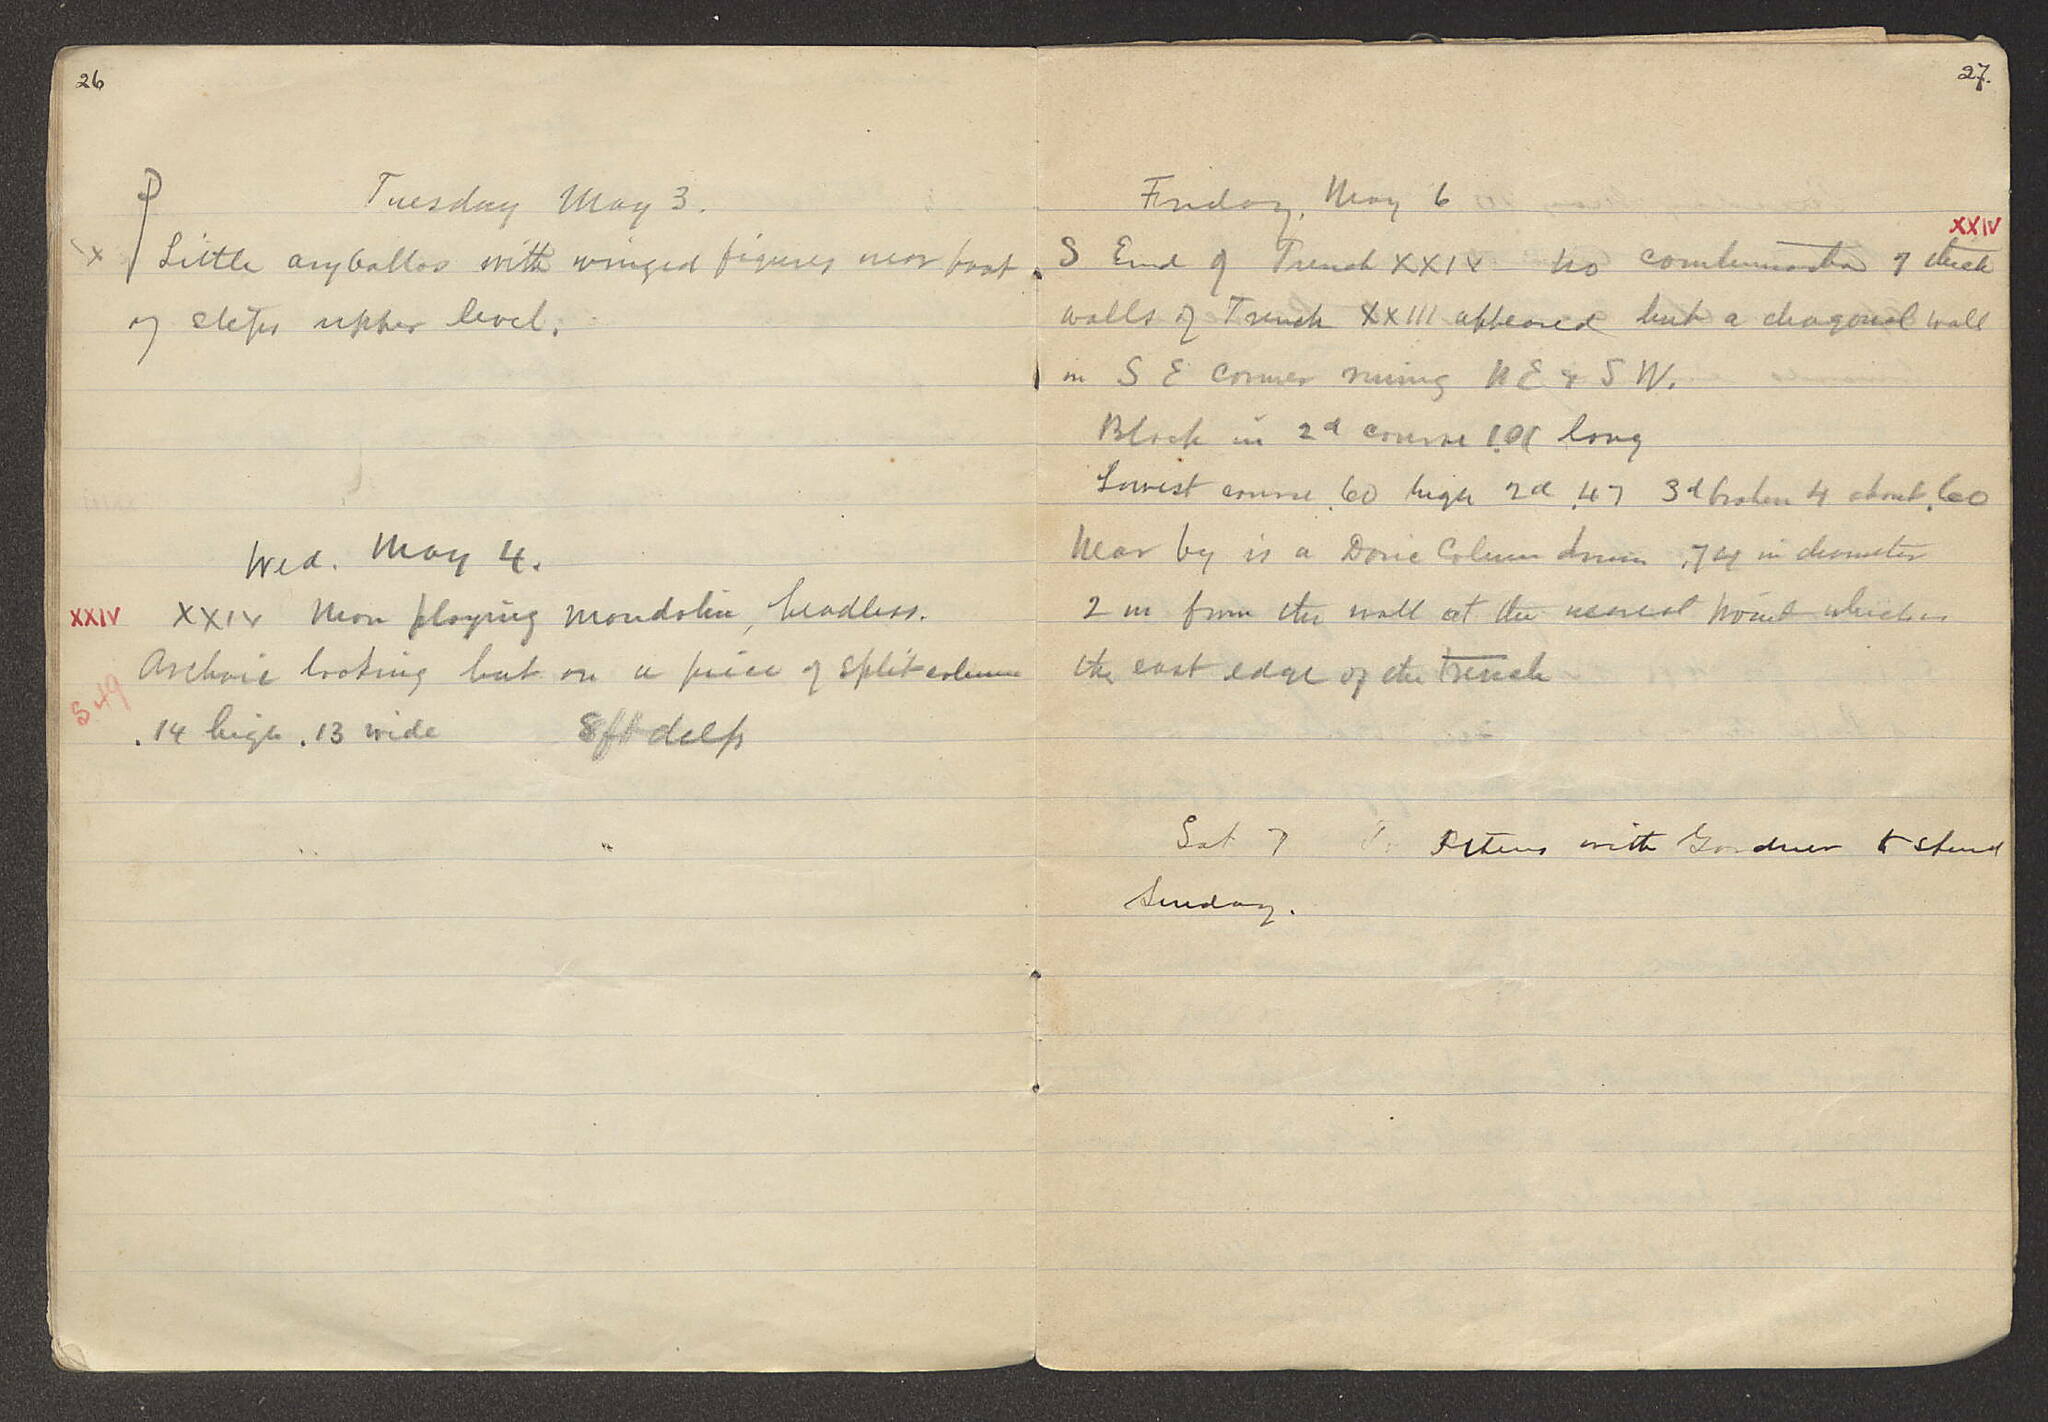 26
Tuesday May 3.
X Little aryballos with winged figures near foot
of steps upper level.
Wed. May 4.
XXIV XXIV Man playing mandolin, headless.
Archaic looking but on a piece of split column
S 49
.14 high .13 wide 8 ft deep
27.
Friday, May 6
XXIV
S End of Trench XXIV no continuation of thick
walls of Trench XXIII appeared but a diagonal wall
in S E corner runing N E & S W.
Block in 2d course long
Lowest course .60 high 2d .47 3d broken 4 about .60
Near by is a Doric Column drum .74 in diameter
2 m from the wall at the nearest point which is
the east edge of the trench
Sat 7 To Athens with Gardner to spend
Sunday.